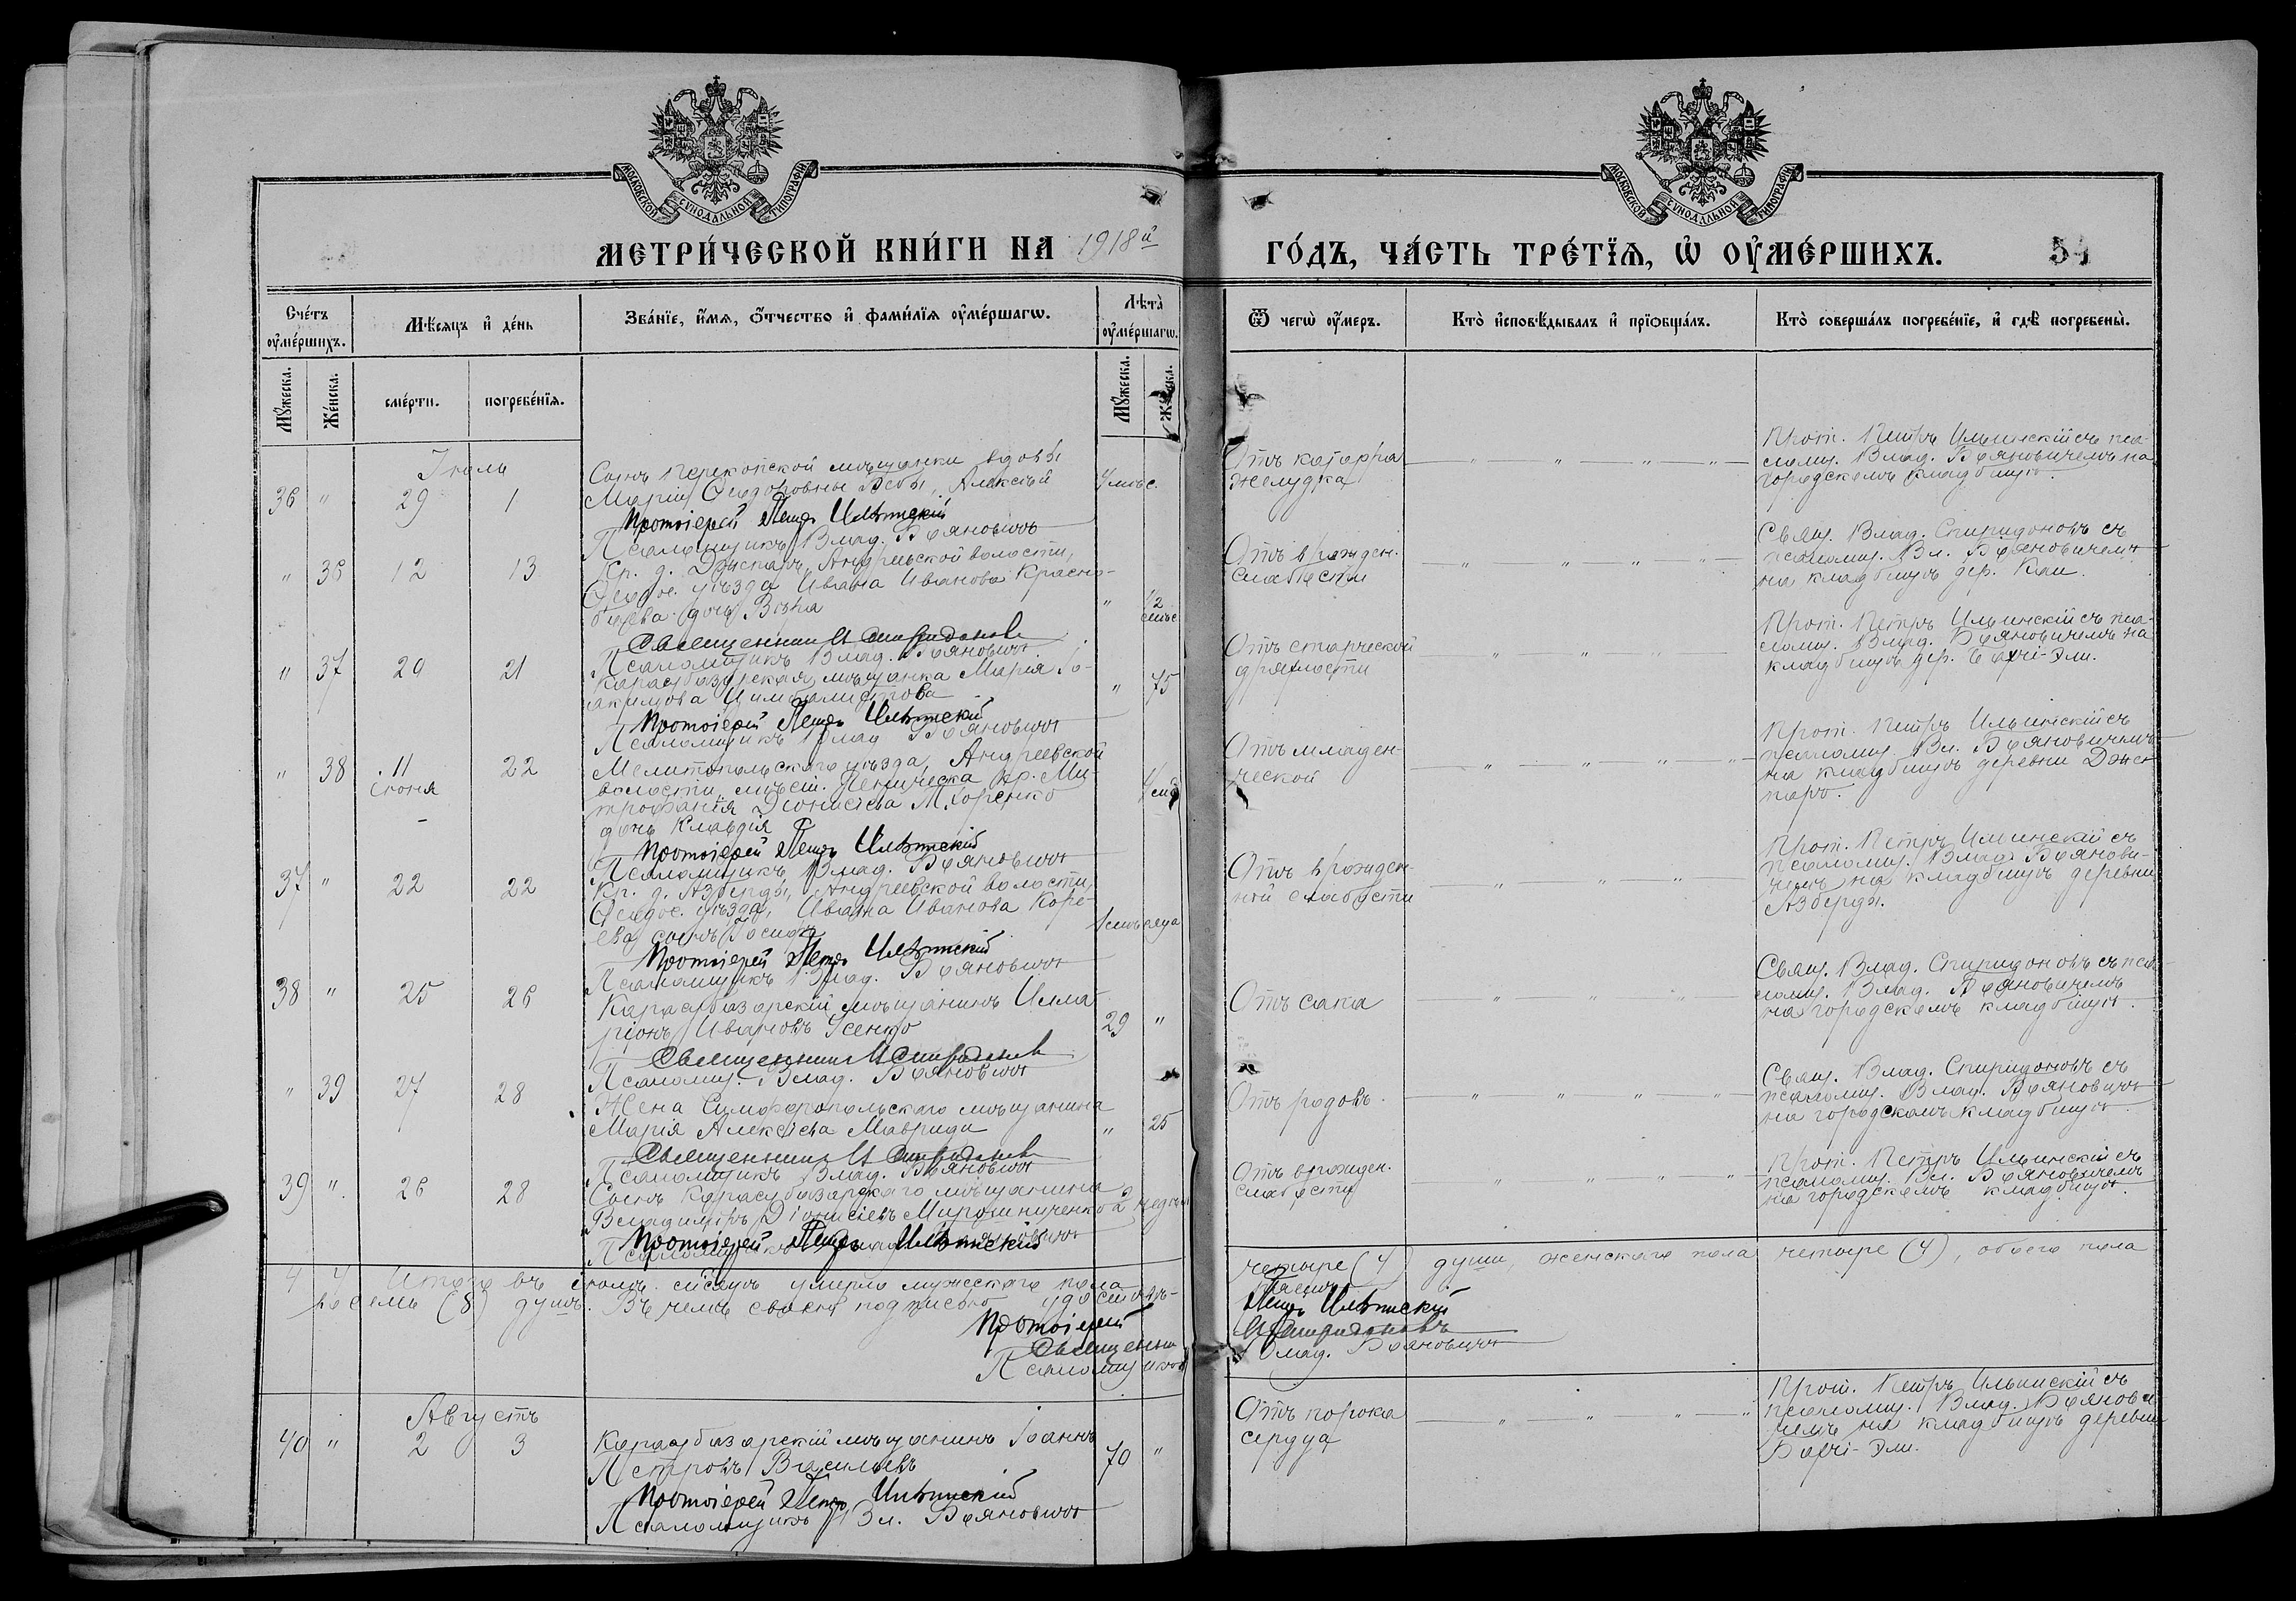 МОСКОВСКОЙ СУНОДАЛЬНОЙ ТИПОГРАФІИ
МОСКОВСКОЙ СУНОДАЛЬНОЙ ТИПОГРАФІИ
МЕТРИ́ЧЕСКОЙ КНИ́ГИ НА 1918й
ГО́ДЪ, ЧА́СТЬ ТРЕ́ТЇѦ, Ѡ҆ ОУ҆МЕ́РШИХЪ.
Сче́тъ оу҆ме́ршихъ.
Мѣ́сяцъ и҆ де́нь
Зва́нїе, и҆́мѧ, ѻ҆́тчество и҆ фами́лїѧ оу҆ме́ршагѡ.
Лѣ́та оу҆ме́ршагѡ.
Ѿ чегѡ̀ оу҆́меръ.
Кто̀ и҆сповѣ́дывалъ и҆ прїѻбща́лъ.
Кто̀ соверша́лъ погребе́нїе, и҆ гдѣ̀ погребены̀.
Мꙋ́жеска.
Же́нска.
сме́рти.
погребе́нїѧ.
Мꙋ́жеска.
Іюль
36 " 29 1
Сынъ Перекопской мѣщанки вдовы
Маріи Ѳеодоровны Алексѣй
Протоіерей Петръ Ильинскій
Псаломщикъ Влад. Бѣяновичъ
Отъ катарра
желудка
Прот. Петръ Ильинскій съ пса-
ломщ. Влад. Бѣяновичемъ на
городскомъ кладбищѣ.
" 36 12 13
Кр. д. Джепаръ, Андреевской волости,
Ѳеодос. уѣзда Ивана Иванова Красно-
баева дочь Вѣра
Священникъ Спиридоновъ
Псаломщикъ Влад. Бѣяновичъ
Отъ врожден.
слабости
Свящ. Влад. Спиридоновъ съ
псаломщ. Вл. Бѣяновичемъ
на кладбищѣ дер.
" 37 20 21
Карасубазарская мѣщанка Марія Іо-
акимова Цимбалистова
" 75
Протоіерей Петръ Ильинскій
Псаломщикъ Влад Бѣяновичъ
Отъ старческой
дряхлости
Прот. Петръ Ильинскій съ пса-
ломщ. Влад. Бѣяновичемъ на
кладбищѣ дер. Бахчі-Эли.
" 38 11 22
іюня
Мелитопольскаго уѣзда, Андреевской
волости, мѣст. Геническа кр. Ми-
трофанія Діонисіева
дочь Клавдія
Протоіерей Петръ Ильинскій
Псаломщикъ Влад. Бѣяновичъ
Отъ младен-
ческой
Прот. Петръ Ильинскій съ
псаломщ. Вл. Бѣяновичемъ
на кладбищѣ деревни Дже-
паръ.
37 " 22 22
Кр. д. Азберды, Андреевской волости,
Ѳеодос. уѣзда, Ивана Иванова Коре-
ева сынъ Іосифъ
1 мѣсяца
Протоіерей Петръ Ильинскій
Псаломщикъ Влад. Бѣяновичъ
Отъ врожден-
ной слабости
Прот. Петръ Ильинскій съ
псаломщ. Влад Бѣянови-
чемъ на кладбищѣ деревни
Азберды.
38 " 25 26
Карасубазарскій мѣщанинъ Илла-
ріонъ Ивановъ Усенко
29 "
Священникъ Спиридоновъ
Псаломщ. Влад. Бѣяновичъ
Отъ сапа
Свящ. Влад. Спиридоновъ съ пса-
ломщ. Влад. Бѣяновичемъ
на городскомъ кладбищѣ.
" 39 27 28
Жена Симферопольскаго мѣщанина
Марія Алексѣева Мавриди
" 25
Священникъ Спиридоновъ
Псаломщикъ Влад. Бѣяновичъ
Отъ родовъ.
Свящ. Влад. Спиридоновъ съ
псаломщ. Влад. Бѣяновичемъ
на городскомъ кладбищѣ.
39 " 26 28
Сынъ Карасубазарскаго мѣщанина
Владиміръ Діонисіевъ Мирошниченко 2 недѣли
Протоіерей Петръ Ильинскій
Отъ врожден.
слабости
Прот. Петръ Ильинскій съ
псаломщ. Вл. Бѣяновичемъ
на городскомъ кладбищѣ.
4 4 Итого въ іюлѣ мѣсяцѣ умерло мужескаго пола четыре (4) души, женскаго пола четыре (4), обоего пола
восемь (8) душъ. Въ чемъ своею подписью удостовѣ-
ряемъ:
Протоіерей Петръ Ильинскій
Священникъ Спиридоновъ
Псаломщикъ Влад. Бѣяновичъ
Августъ
40 " 2 3
Карасубазарскій мѣщанинъ Іоаннъ
Петровъ Васильевъ
70 "
Протоіерей Петръ Ильинскій
Псаломщикъ Вл. Бѣяновичъ
Отъ порока
сердца
Прот. Петръ Ильинскій съ
псаломщ. Влад. Бѣянови-
чемъ на кладбищѣ деревни
Бахчі-Эли.